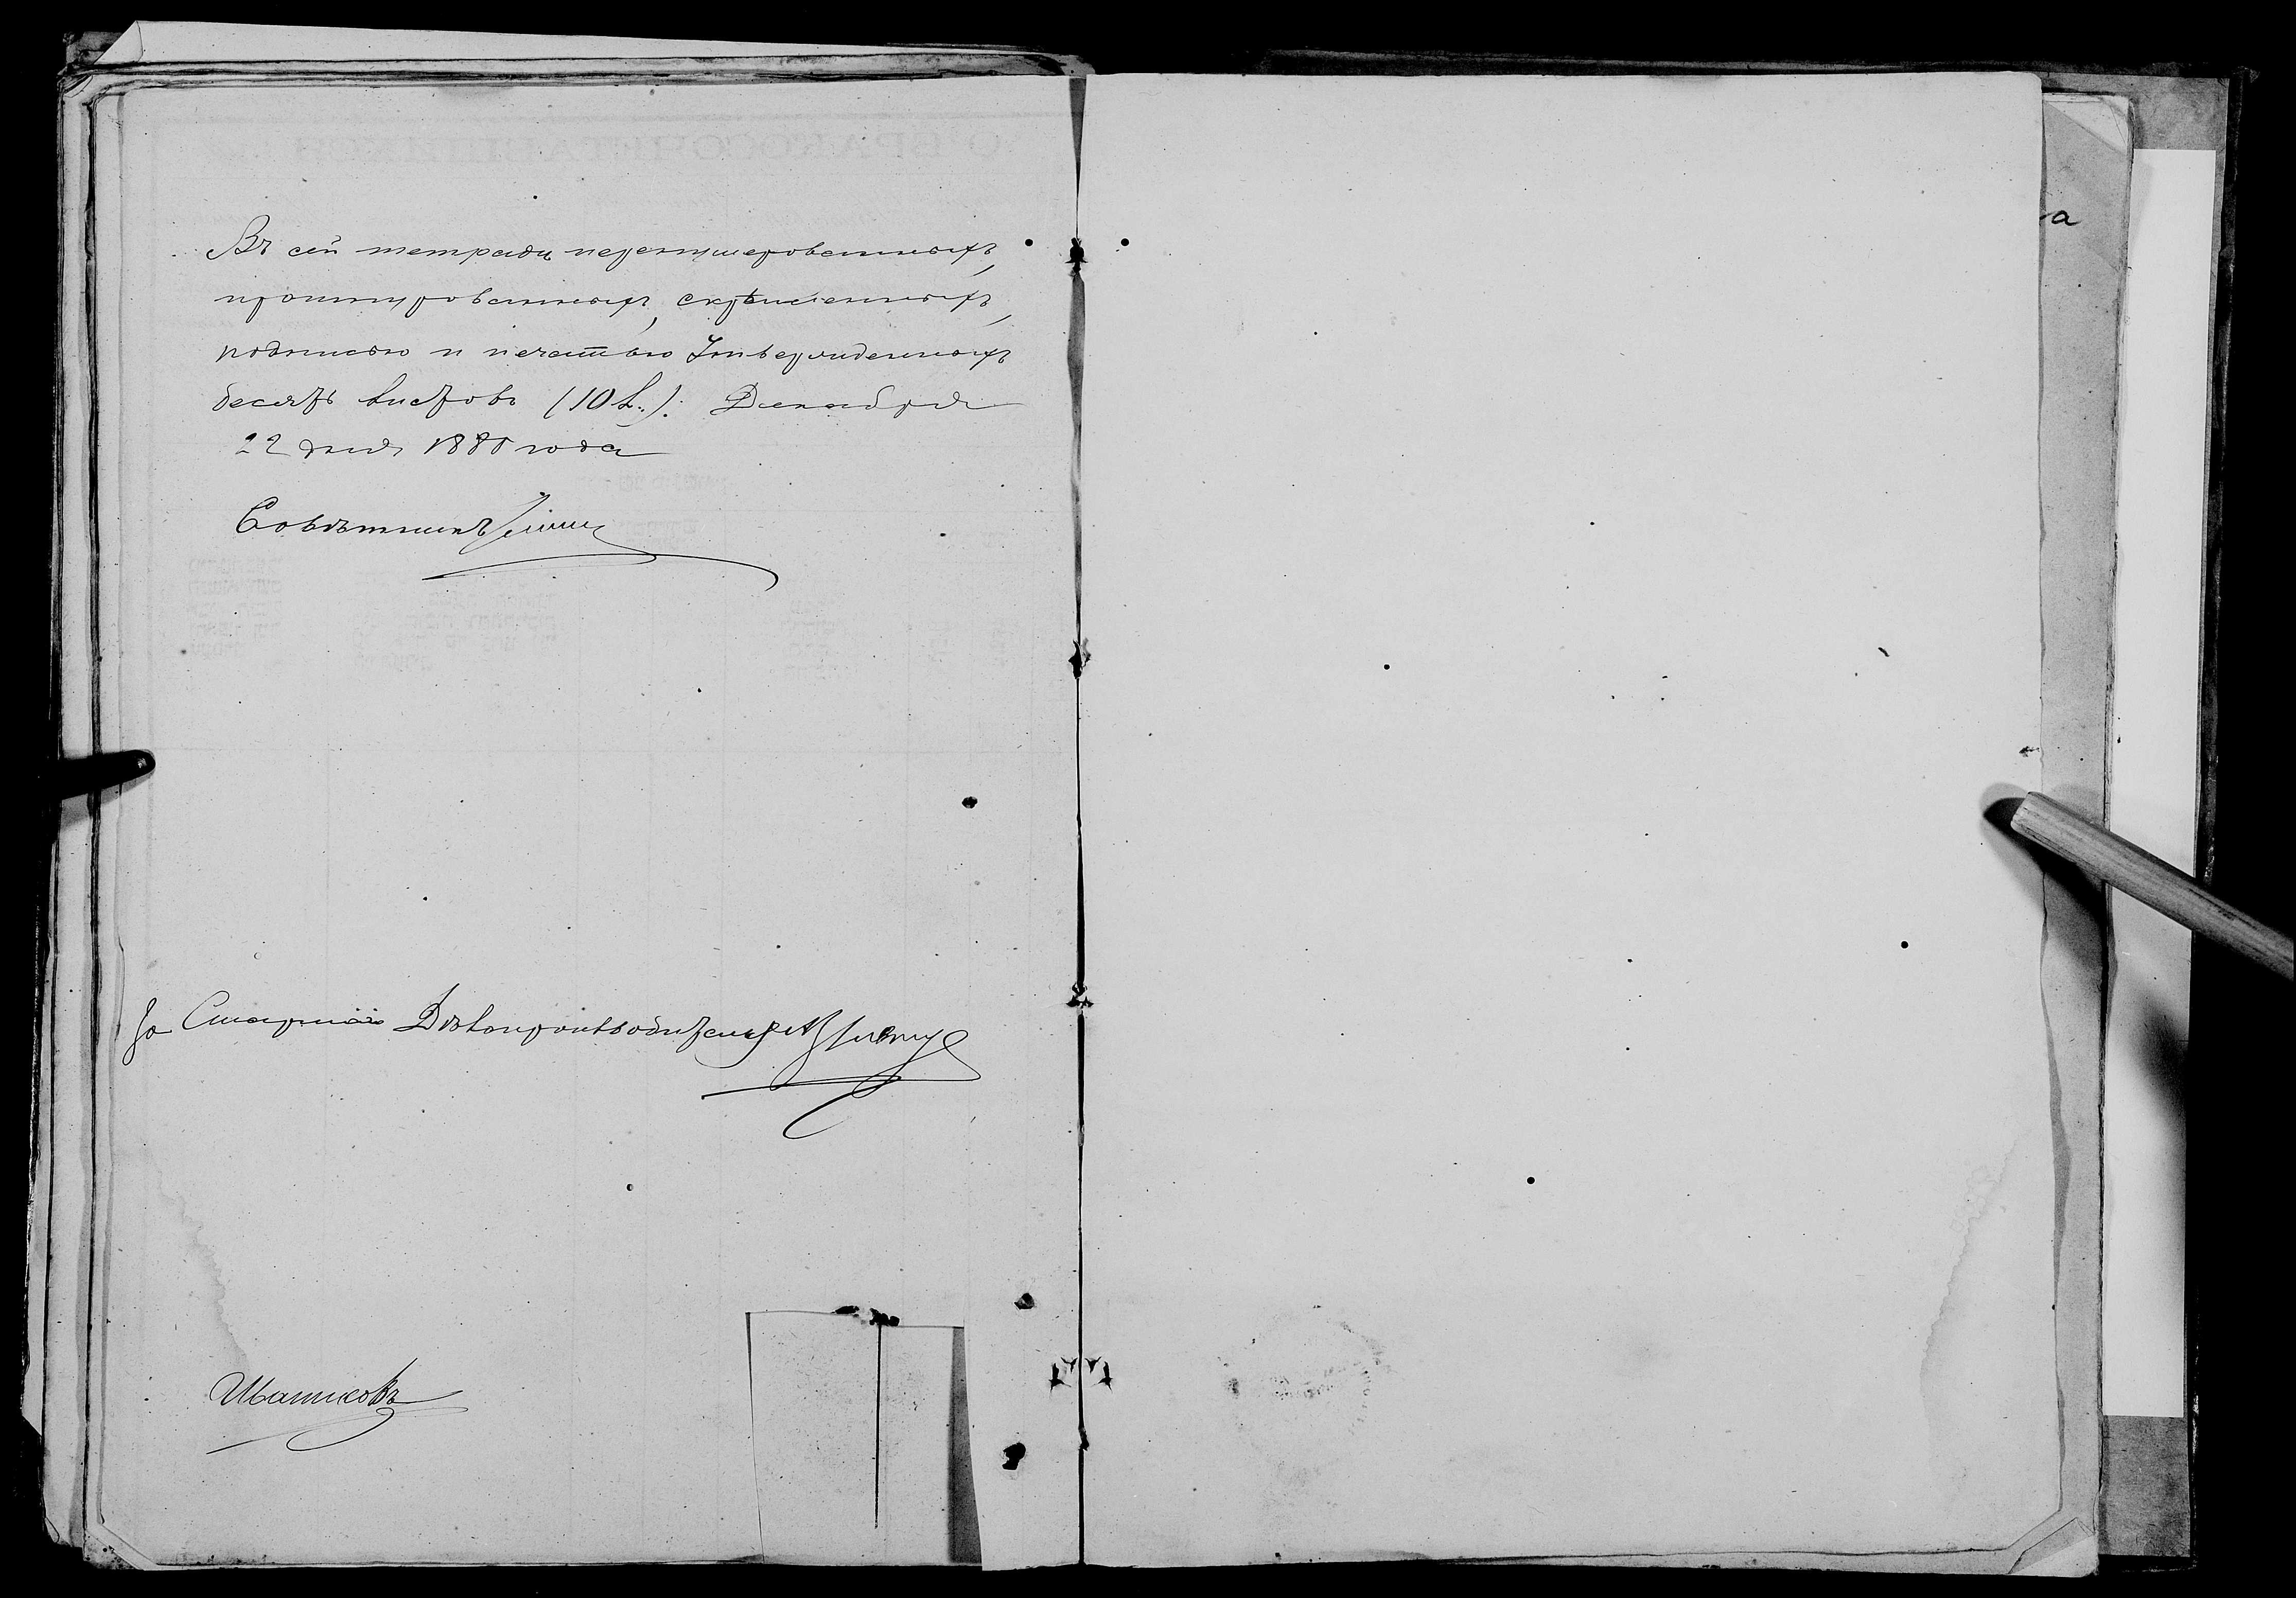 Въ сей тетради перенумерованныхъ,
прошнурованныхъ, скрѣпленныхъ,
подписью и печатью утвержденныхъ
десять листовъ (10 л.). Декабря
22 дня 1880 года
Совѣтникъ
За Старшій Дѣлопроизводитель
Иванисовъ
а